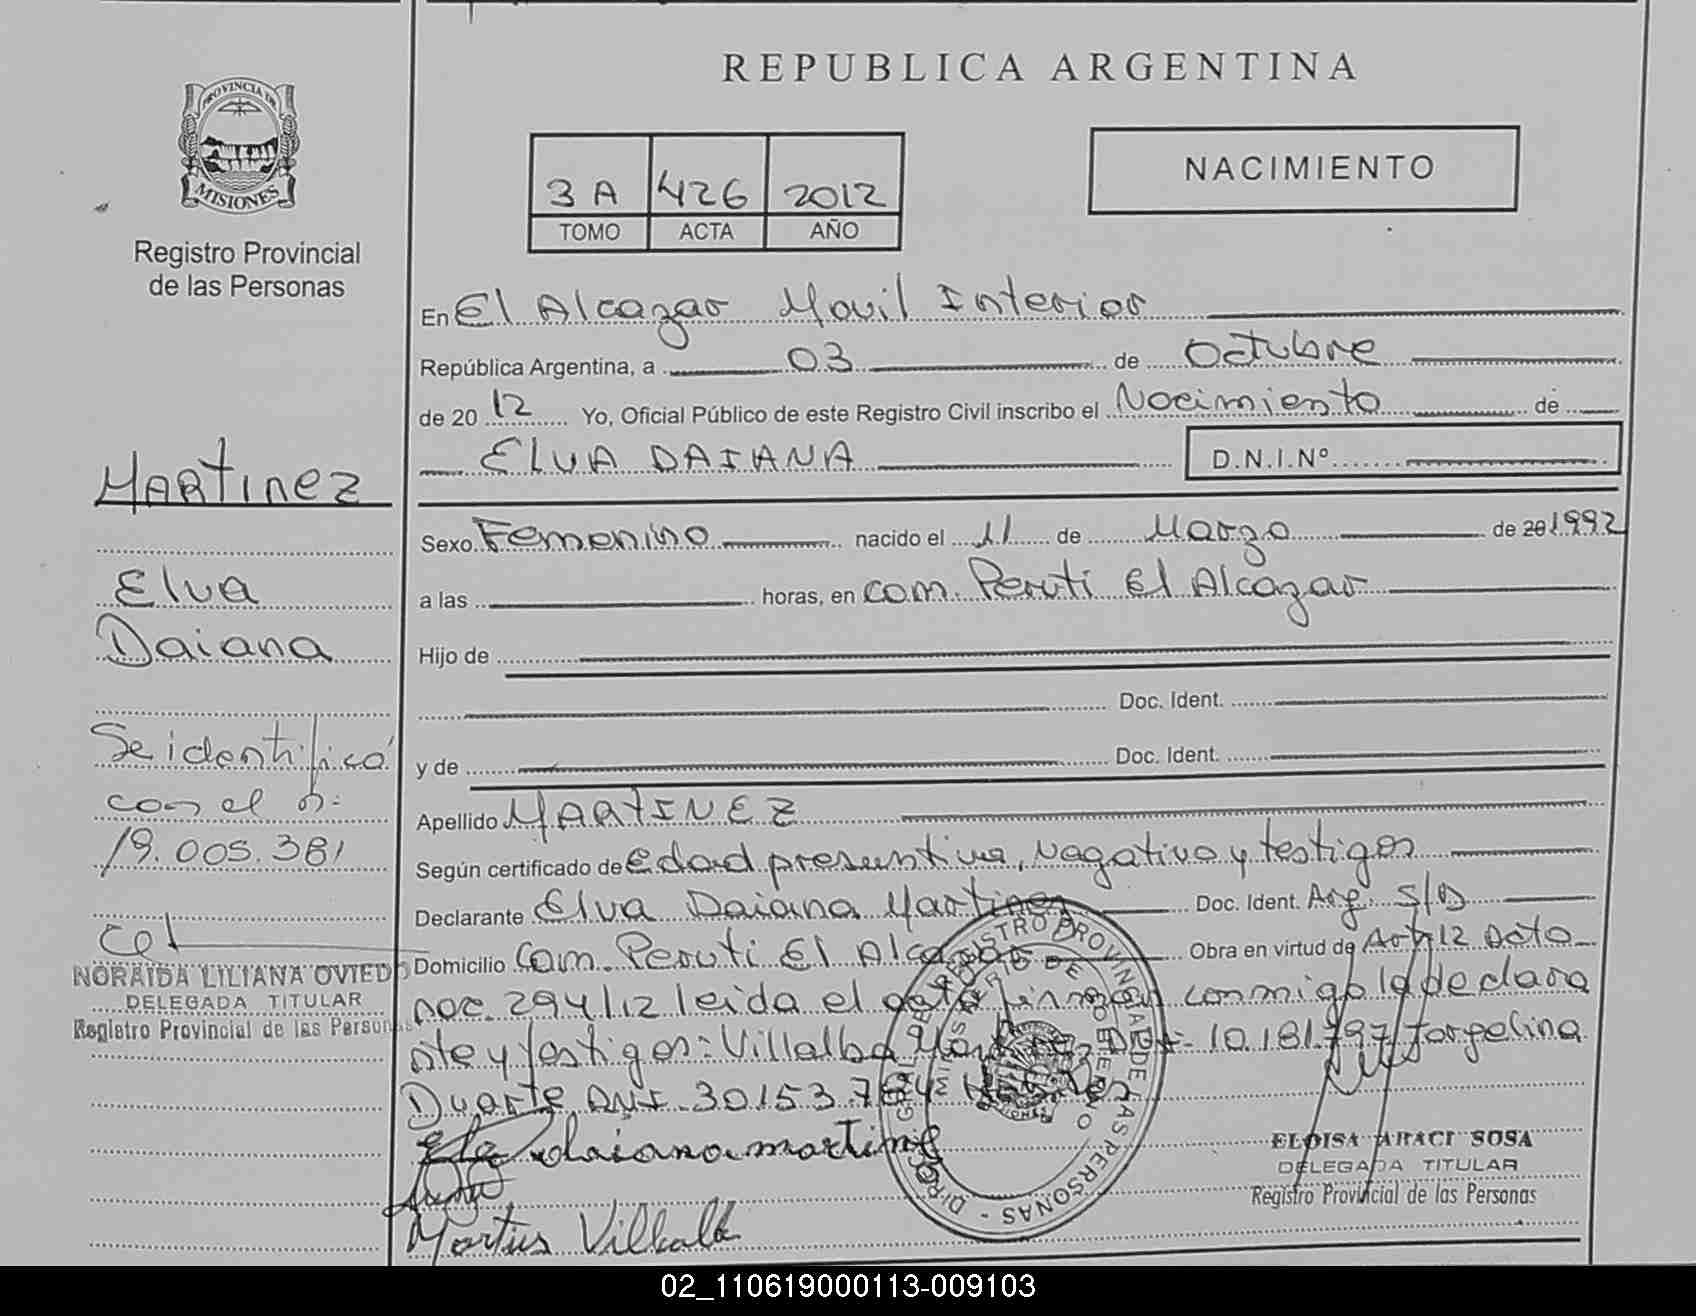 REPUBLICA ARGENTINA
PROVINCIA DE
MISIONES
Registro Provincial
de las Personas
3 A 426 2012
TOMO ACTA AÑO
NACIMIENTO
En El Alcazar Movil Interior
República Argentina, a 03 de Octubre
de 20 12 Yo, Oficial Público de este Registro Civil inscribo el Nacimiento de
ELVA DAIANA D.N.I.Nº
Sexo Femenino nacido el 11 de Marzo de 20 1992
a las horas, en com. Peruti El Alcazar
Hijo de
Doc. Ident.
y de Doc. Ident.
Apellido MARTINEZ
Según certificado de edad presuntiva, Negativo y testigos
Declarante Elva Daiana Martinez Doc. Ident. Arg. S/D
Domicilio Com. Peruti El Alcazar Obra en virtud de Art 12 Dcto
294/12 leida el acta firman conmigo la declara
nte y testigos: Villalba 10.181.797 Jorgelina
Duarte DNI. 30.153.
daiana martinez
Villalba
ELOISA ARACI SOSA
DELEGADA TITULAR
Registro Provincial de las Personas
MARTINEZ
Elva
Daiana
Se identificó
con el n:
19.005.381
NORAIDA LILIANA OVIEDO
DELEGADA TITULAR
Registro Provincial de las Personas
02_110619000113-009103